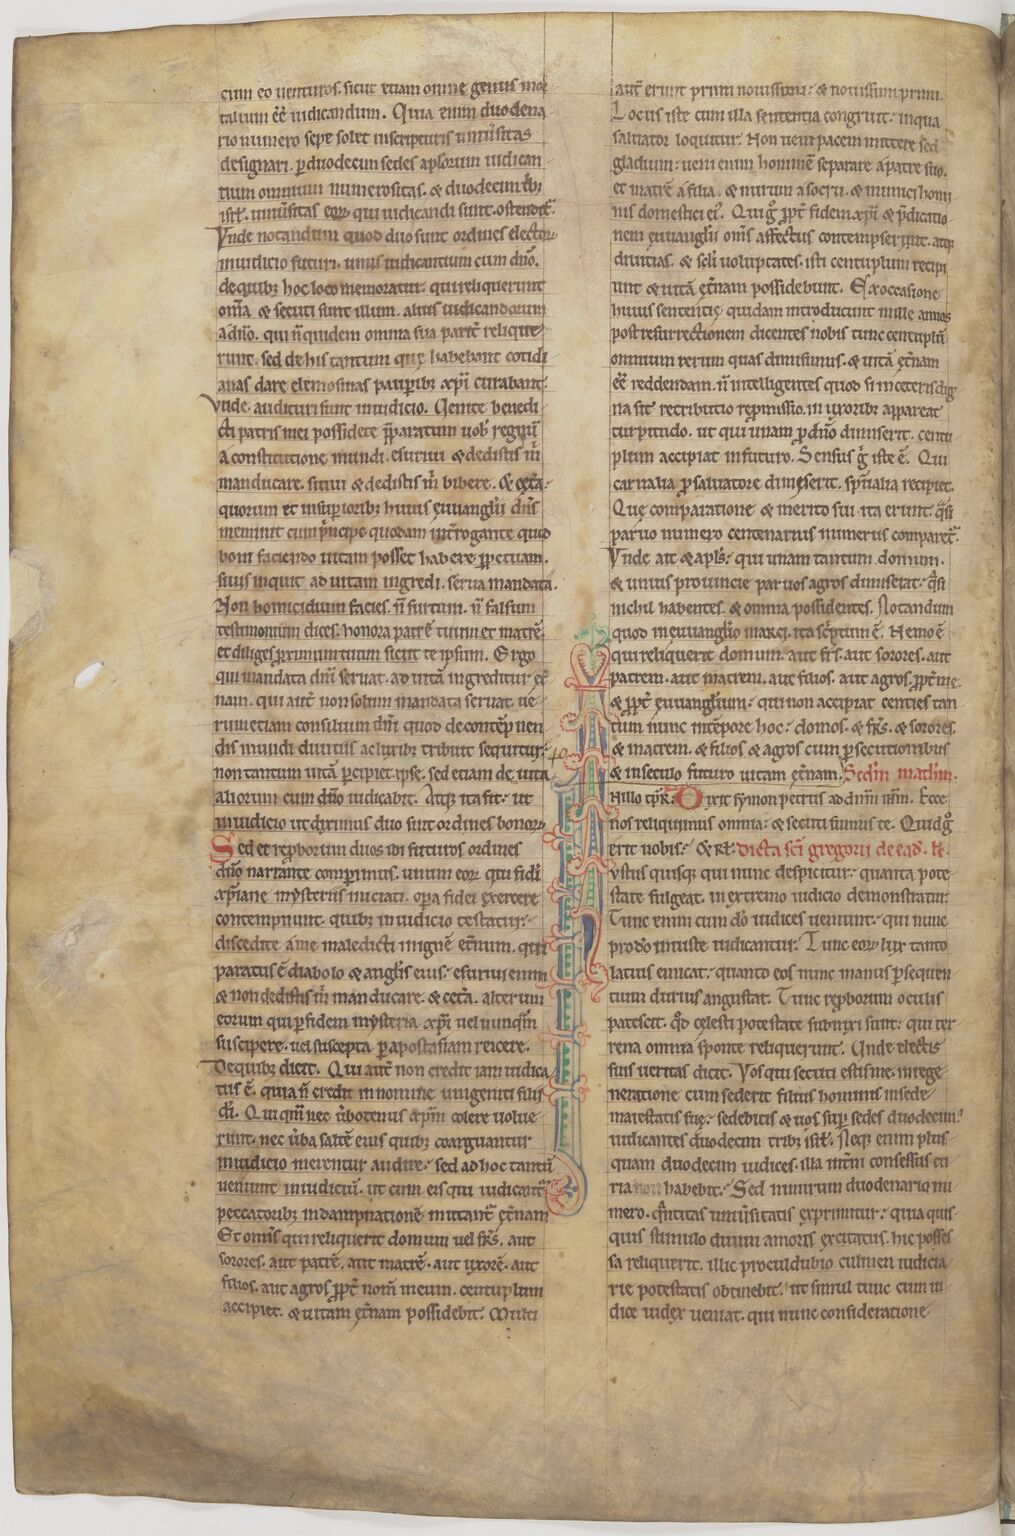 cum eo uenturos. sicut etiam omne genus mor
talium eẽ iudicandum. Quia enim duodena
rio numero sepe solet inscripturis uniũsitas
designari. ꝑ duodecim sedes apl̃orum iudican
tium omnium numerositas. & duodecim tribꝫ
isrł. uniũsitas eoꝝ qui iudicandi sunt. ostendit᷑.
Vnde notandum quod duo sunt ordines electoꝝ
iniudicio futuri. unus iudicantium cum dño.
dequibꝫ hoc loco memoratur. qui reliquerunt
om̃a & secuti sunt illum. alius iudicandorum
a dño. qui ñ quidem omnia sua parit᷑ relique
runt. sed de his tantum quę habebant cotidi
anas dare elemosinas pauꝑibꝫ xp̃i curabant.
Vnde. audituri sunt iniudicio. Venite benedi
cti patris mei possidete p̃paratum uob̃ regnũ
a constitutione mundi. esuriui & dedistis m̃
manducare. sitiui & dedistis m̃ bibere. & cęt̃a.
quorum et insuꝑioribꝫ huius euuangl̃ii dñs
meminit cum p̃ncipe quodam int̃rogante quid
boni faciendo uitam posset habere ꝑpetuam.
siuis inquit ad uitam ingredi. serua mandata.
Non homicidium facies. ñ furtum. ñ falsum
testimonium dices. honora patrẽ tuum et matrẽ.
et diliges proximum tuum sicut te ipsum. Ergo
qui mandata dñi seruat. ad uitã ingreditur ęt̃
nam. qui aut̃ non solum mandata seruat. ue
rum etiam consilium dñi quod de contẽpnen
dis mundi diuitiis ac luxibꝫ tribuit sequitur.
non tantum uitã ꝑcipiet ipse. sed etiam de uita
aliorum cum dño iudicabit. Atqꝫ ita fit. ut
iniudicio ut diximus duo sint ordines bonoꝝ.
Sed et reꝓborum duos ibi futuros ordines
dño narrante comꝑimus. unum eoꝝ qui fidei
xp̃iane mysteriis iniciati. oꝑa fidei exercere
contempnunt. quibꝫ in iudicio testatur.
discedite a me maledicti in ignẽ et̃num. qui
paratus ẽ diabolo & angl̃is eius. esuriui enim
& non dedistis m̃ manducare. & cet̃a. alterum
eorum qui ꝑ fidem mysteria xp̃i uel nunqͣm
suscipere. uel suscepta ꝑ apostasiam reicere.
De quibꝫ dicit. Qui aut̃ non credit iam iudica
tus ẽ. quia ñ credit in nomine unigeniti filii
dĩ. Qui qm̃ nec ũbotenus xp̃m colere uolue
runt. nec ũba saltẽ eius quibꝫ coarguantur
iniudicio merentur audire. sed ad hoc tantũ
ueniunt iniudiciũ. ut cum eis qui iudicant᷑
peccatoribꝫ indampnationẽ mittant᷑ ęt̃nam
Et omĩs qui reliquerit domum uel fr̃s. aut
sorores. aut patrẽ. aut matrẽ. aut uxorẽ. aut
filios. aut agros ꝓpt̃ nom̃ meum. centuplum
accipiet. & uitam ęt̃nam possidebit. Multi
aut̃ erunt primi nouissimi. & nouissimi primi.
Locus iste cum illa sententia congruit. in qua
saluator loquitur. Non ueni pacem mittere sed
gladium. ueni enim hominẽ separare a patre suo.
et matrẽ a filia. & nurum a socru. & inimici homi
nis domestici ei᷒. Qui gͦ ꝓpt̃ fidem xp̃i & p̃dicatio
nem euuangl̃ii om̃s affectus contempserunt. atqꝫ
diuitias. & sed̃i uoluptates. isti centuplum recipi
unt & uitã ęt̃nam possidebunt. Ex occasione
huius sententię quidam introducunt mille annos
post resurrectionem dicentes nobis tunc centuplũ
omnium rerum quas dimisimus. & uitã ęt̃nam
eẽ reddendam. ñ intelligentes quod si in ceteris dig
na sit retributio repromissio. in uxoribꝫ appareat
turpitudo. ut qui unam ꝑ dño dimiserit. centu
plum accipiat infuturo. Sensus gͦ iste ẽ. Qui
carnalia ꝓ saluatore dimiserit. sp̃ualia recipiet.
Quę comparatione & merito sui ita erunt qͣsi
paruo numero centenarius numerus comparet᷑.
Vnde ait & apl̃s. qui unam tantum domum.
& unius prouincie paruos agros dimiserat. qͣsi
nichil habentes. & omnia possidentes. Notandum
quod in euuangl̃io marci. ita sc̃ptum ẽ. Nemo ẽ
qui reliquerit domum. aut fr̃s. aut sorores. aut
patrem. aut matrem. aut filios. aut agros ꝓpt̃ me.
& ꝓpt̃ euuangl̃ium. qui non accipiat centies tan
tum nunc intẽpore hoc. domos. & fr̃s. & sorores.
& matrem. & filios & agros cum ꝑsecutionibus
& in seculo futuro uitam ęt̃nam. Scdm̃ math̃m.
IN illo tp̃r. Dixit symon petrus ad dñm ih̃m. Ecce
nos reliquimus omnia. & secuti sumus te. Quid gͦ
erit nobis. & rł. Dicta sc̃i gregorii de ead̃. lc̃.
Iustus quisqꝫ qui nunc despicitur. quanta pote
state fulgeat. in extremo iudicio demonstratur.
Tunc enim cum dõ iudices ueniunt. qui nunc
pro dõ iniuste iudicantur. Tunc eoꝝ lux tanto
latius emicat. quanto eos nunc manus ꝑsequen
tium durius angustat. Tunc reꝓborum oculis
patescit. qđ celesti potestate subnixi sunt. qui ter
rena omnia sponte reliquerunt. Vnde electis
suis ueritas dicit. Vos qui secuti estis me. in rege
neratione cum sederit filius hominis in sede
maiestatis suę. sedebitis & uos suꝑ sedes duodecim.
iudicantes duodecim tribꝫ isrł. Neqꝫ enim plus
quam duodecim iudices. illa int̃ni consessus cu
ria non habebit. Sed nimirum duodenario nu
mero. qͣntitas uniũsitatis exprimitur. quia quis
quis stimulo diuini amoris excitatus. hic posses
sa reliquerit. illic procul dubio culmen iudicia
rie potestatis obtinebit. ut simul tunc cum iu
dice iudex ueniat. qui nunc consideratione